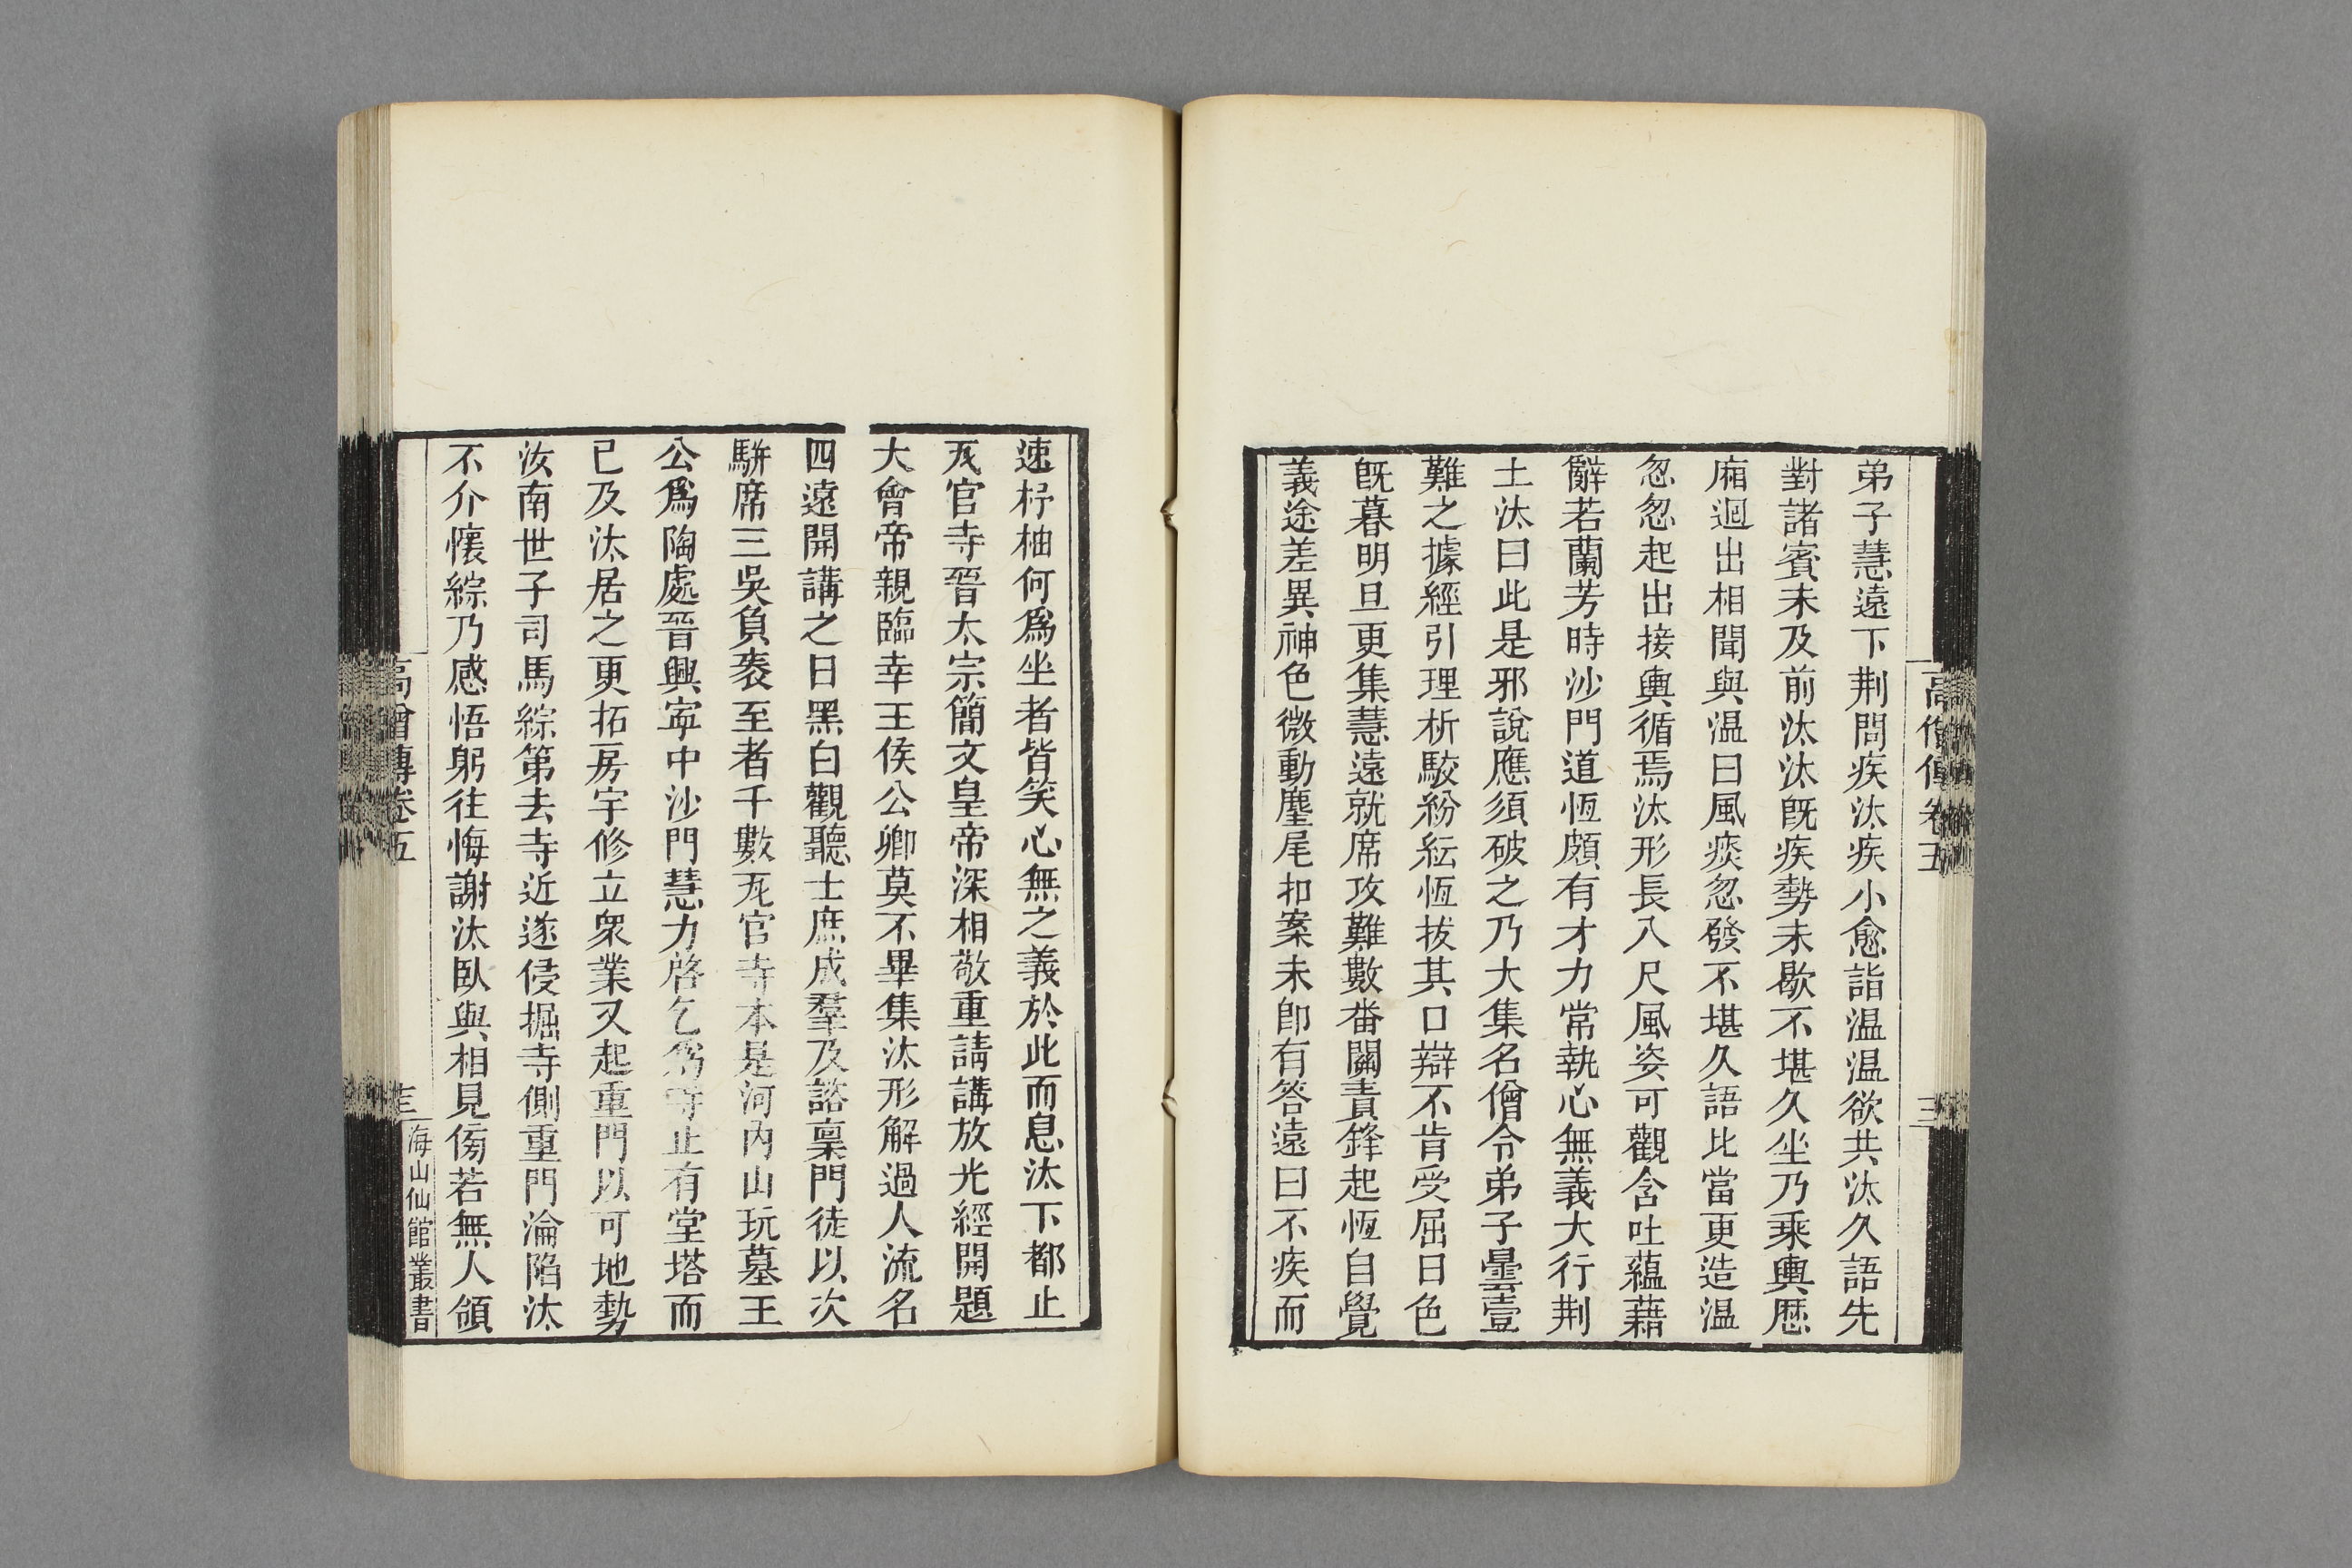 弟子慧遠下荆問疾汰疾小愈詣温温欲共汰久語先
對諸賓未及前汰汰旣疾勢未歇不堪久坐乃乘輿歷
廂迴出相聞與温曰風痰忽發不堪久語比當更造温
忽忽起出接輿循焉汰形長八尺風姿可觀含吐蘊藉
辭若蘭芳時沙門道恆頗有才力常執心無義大行荆
土汰曰此是邪說應須破之乃大集名僧令弟子曇壹
難之據經引理析駮紛紜恆拔其口辯不肯受屈日色
旣暮明旦更集慧遠就席攻難數番關責鋒起恆自覺
義途差異神色微動麈尾扣案未卽有答遠曰不疾而
速杼柚何爲坐者皆笑心無之義於此而息汰下都止
瓦官寺晉太宗簡文皇帝深相敬重請講放光經開題
大會帝親臨幸王侯公卿莫不畢集汰形解過人流名
四遠開講之日黑白觀聽士庶成羣及諮稟門徒以次
駢席三吳負袠至者千數瓦官寺本是河內山玩墓王
公爲陶處晉興寧中沙門慧力啓乞爲寺止有堂塔而
已及汰居之更拓房宇修立衆業又起重門以可地勢
汝南世子司馬綜第去寺近遂侵掘寺側重門淪陷汰
不介懷綜乃感悟躬往悔謝汰臥與相見傍若無人領
高僧傳卷五
海山仙館叢書